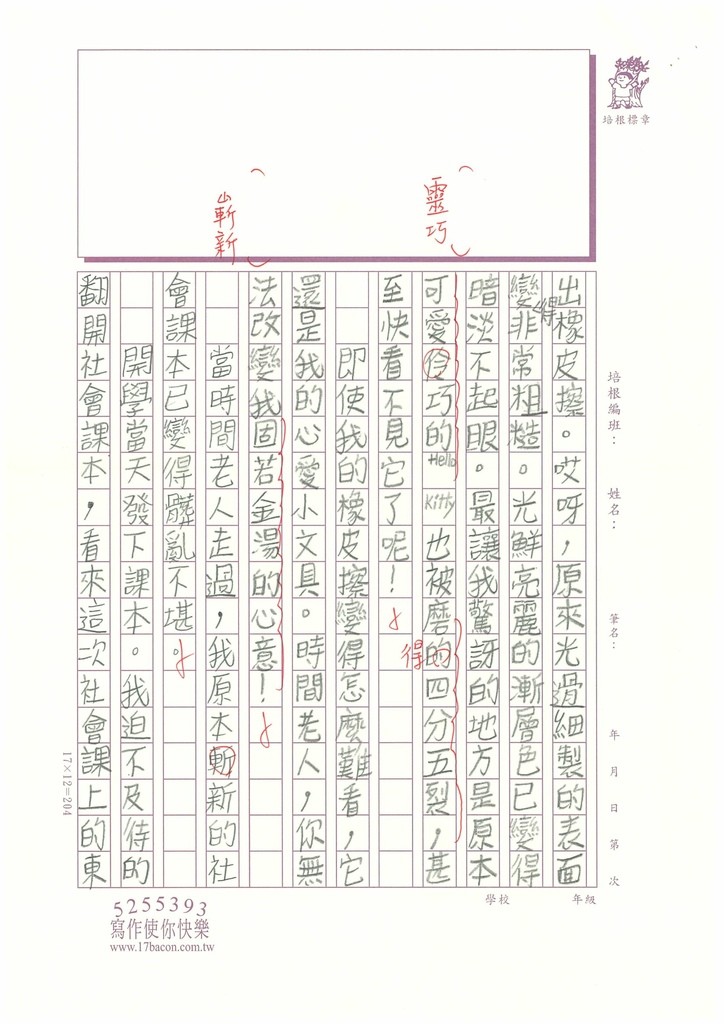 培根標章
靈巧
嶄新
出橡皮擦。哎呀，原來光滑細製的表面
變得非常粗糙。光鮮亮麗的漸層色已變得
暗淡不起眼。最讓我驚訝的地方是原本
可愛伶巧的Hello Kitty也被磨的四分五裂，甚
得
至快看不見它了呢！
即使我的橡皮擦變得怎麼難看，它
還是我的心愛小文具。時間老人，你無
法改變我固若金湯的心意！
當時間老人走過，我原本斬新的社
會課本已變得髒亂不堪。
開學當天發下課本。我迫不及待的
翻開社會課本，看來這次社會課上的東
培根編班：
姓名：
筆名：
年 月 日 第 次
學校 年級
17×12=204
5255393
寫作使你快樂
www.17bacon.com.tw